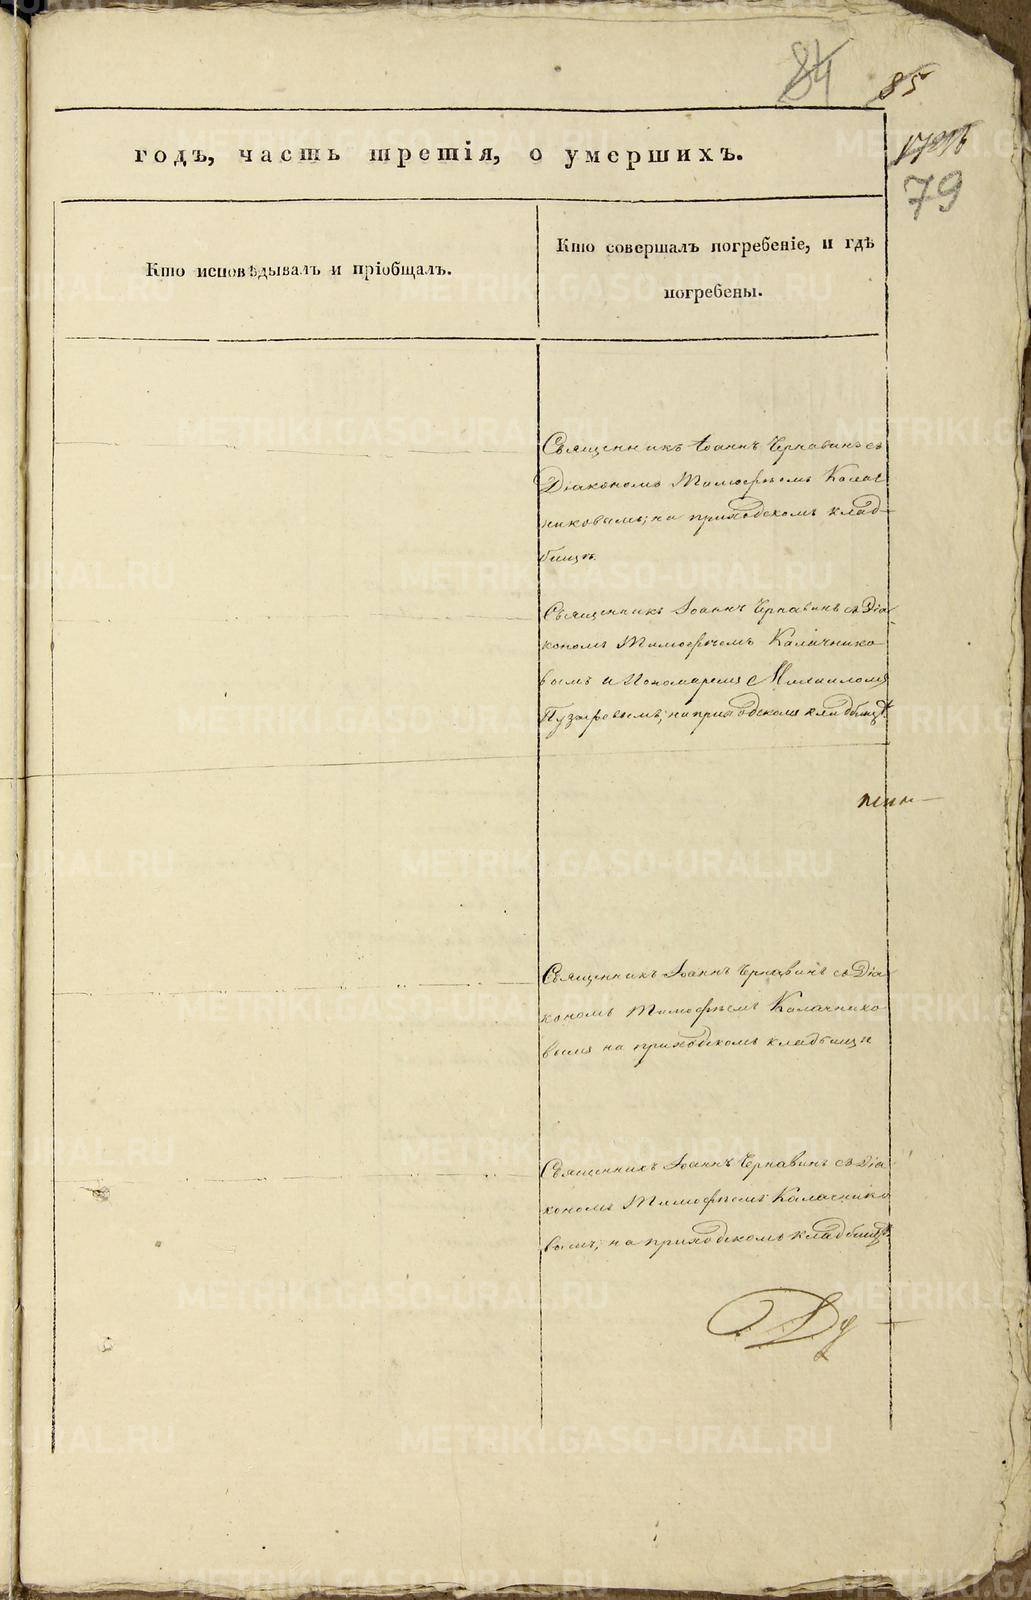 84 85
79
годъ, часть третія, о умершихъ.
Кто исповѣдывалъ и пріобщалъ.
Кто совершалъ погребеніе, и гдѣ
погребены.
Священникъ Іоаннъ Чернавинъ съ
Діакономъ Тимофѣемъ Калач
никовымъ; на приходскомъ клад-
бищѣ.
Священникъ Іоаннъ Чернавинъ съ Діа
кономъ Тимофѣемъ Калачнико
вымъ и Пономаремъ Михаиломъ
Пузыревымъ; на приходскомъ кладбищѣ.
Священникъ Іоаннъ Чернавинъ съ Діа
кономъ Тимофѣемъ Калачнико
вымъ на приходскомъ кладбищѣ
Священникъ Іоаннъ Чернавинъ съ Діа
кономъ Тимофѣемъ Калачнико
вымъ, на приходскомъ кладбищѣ.
METRIKI.GASO-URAL.RU